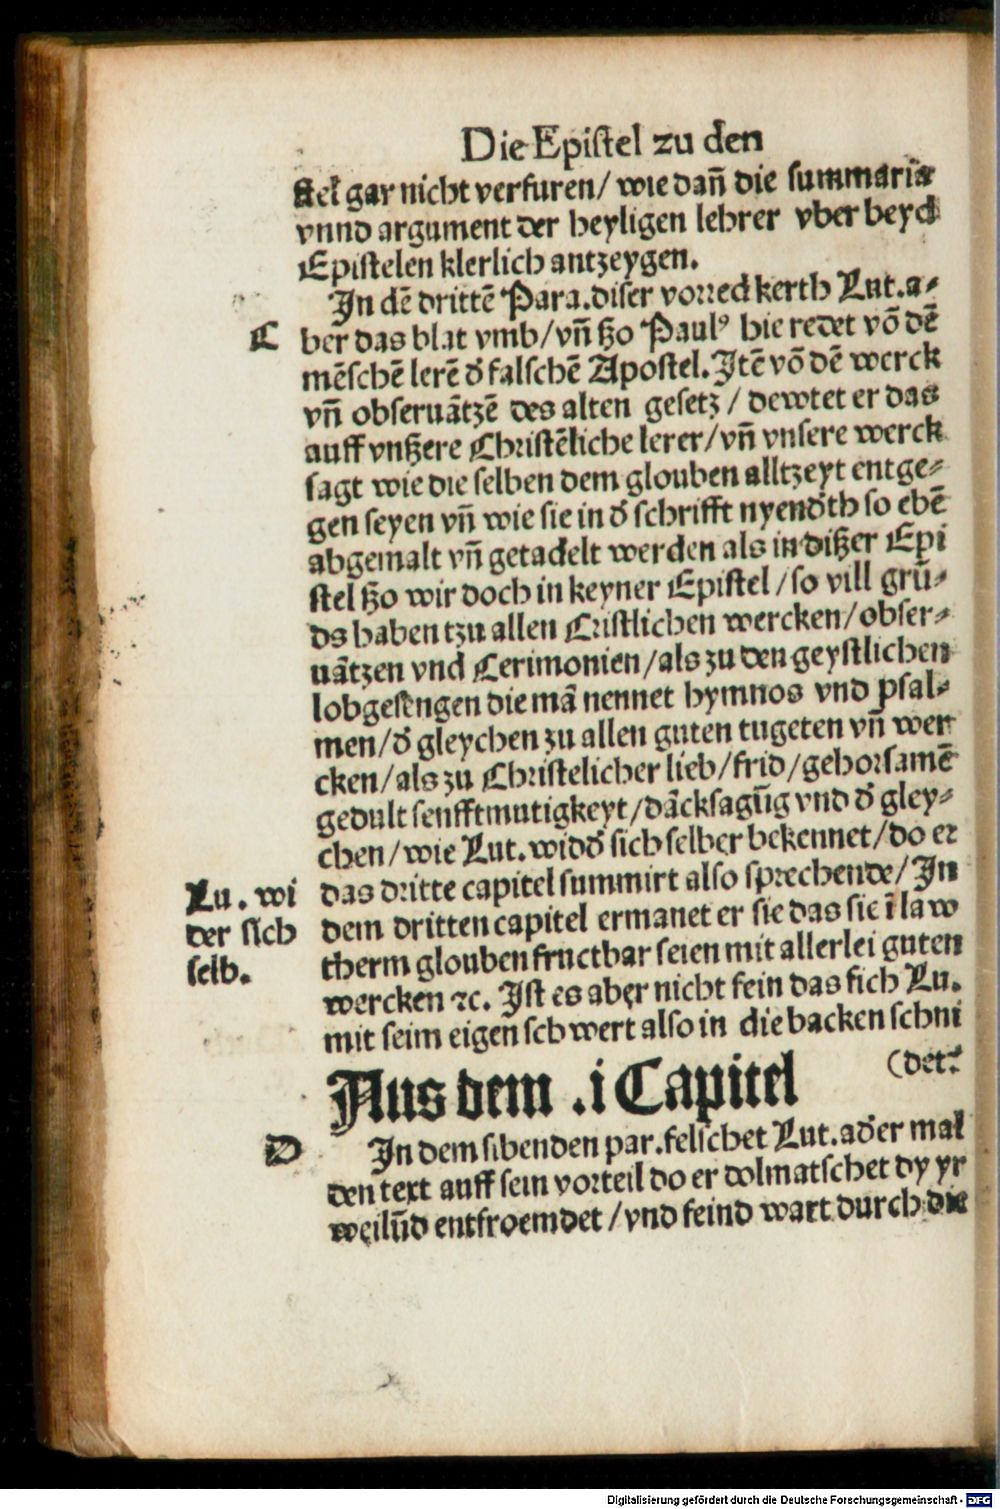 Die Epistel zu den
stel gar nicht verfuren/ wie dañ die summaria
vnnd argument der heyligen lehrer vber beyd
Epistelen klerlich antzeygen.
In dē drittē Para. diser vorred kerth Lut. a-
C
ber das blat vmb/ vñ ßo Paulꝰ hie redet vō dē
mēschē lerē d' falschē Apostel. Itē vō dē werck
vñ obseruātzē des alten gesetz/ dewtet er das
auff vnßere Christēliche lerer/ vñ vnsere werck
sagt wie die selben dem glouben alltzeyt entge-
gen seyen vñ wie sie in d' schrifft nyend'th so ebē
abgemalt vñ getadelt werden als in dißer Epi
stel ßo wir doch in keyner Epistel/ so vill grū-
ds haben tzu allen Cristlichen wercken/ obser-
uātzen vnd Cerimonien/ als zu den geystlichen
lobgesengen die mā nennet hymnos vnd psal-
men/ d' gleychen zu allen guten tugeten vñ wer
cken/ als zu Christelicher lieb/ frid/ gehorsamē
gedult senfftmutigkeyt/ dācksagūg vnd d' gley-
chen/ wie Lut. widd' sich selber bekennet/ do er
Lu. wi
der sich
selb.
das dritte capitel summirt also sprechende/ In
dem dritten capitel ermanet er sie das sie ī law
therm glouben fructbar seien mit allerlei guten
wercken ⁊c. Ist es aber nicht fein das sich Lu.
mit seim eigen schwert also in die backen schni
(det?
Aus dem .i Capitel
D
In dem sibenden par. felschet Lut. ad'er mal
den text auff sein vorteil do er dolmatschet dy yr
weilūd entfroemdet/ vnd feind wart durch die
Digitalisierung gefördert durch die Deutsche Forschungsgemeinschaft - DFG